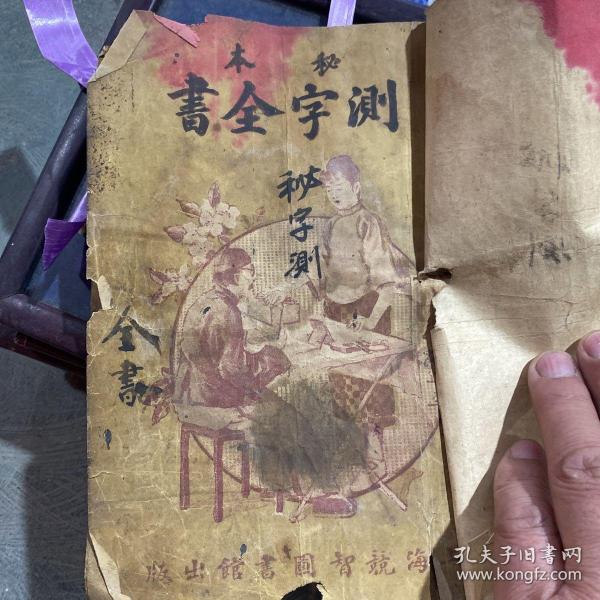 秘本
測字全書
秘字測
全書
海競智圖書館出版
孔夫子旧书网
www.kongfz.com